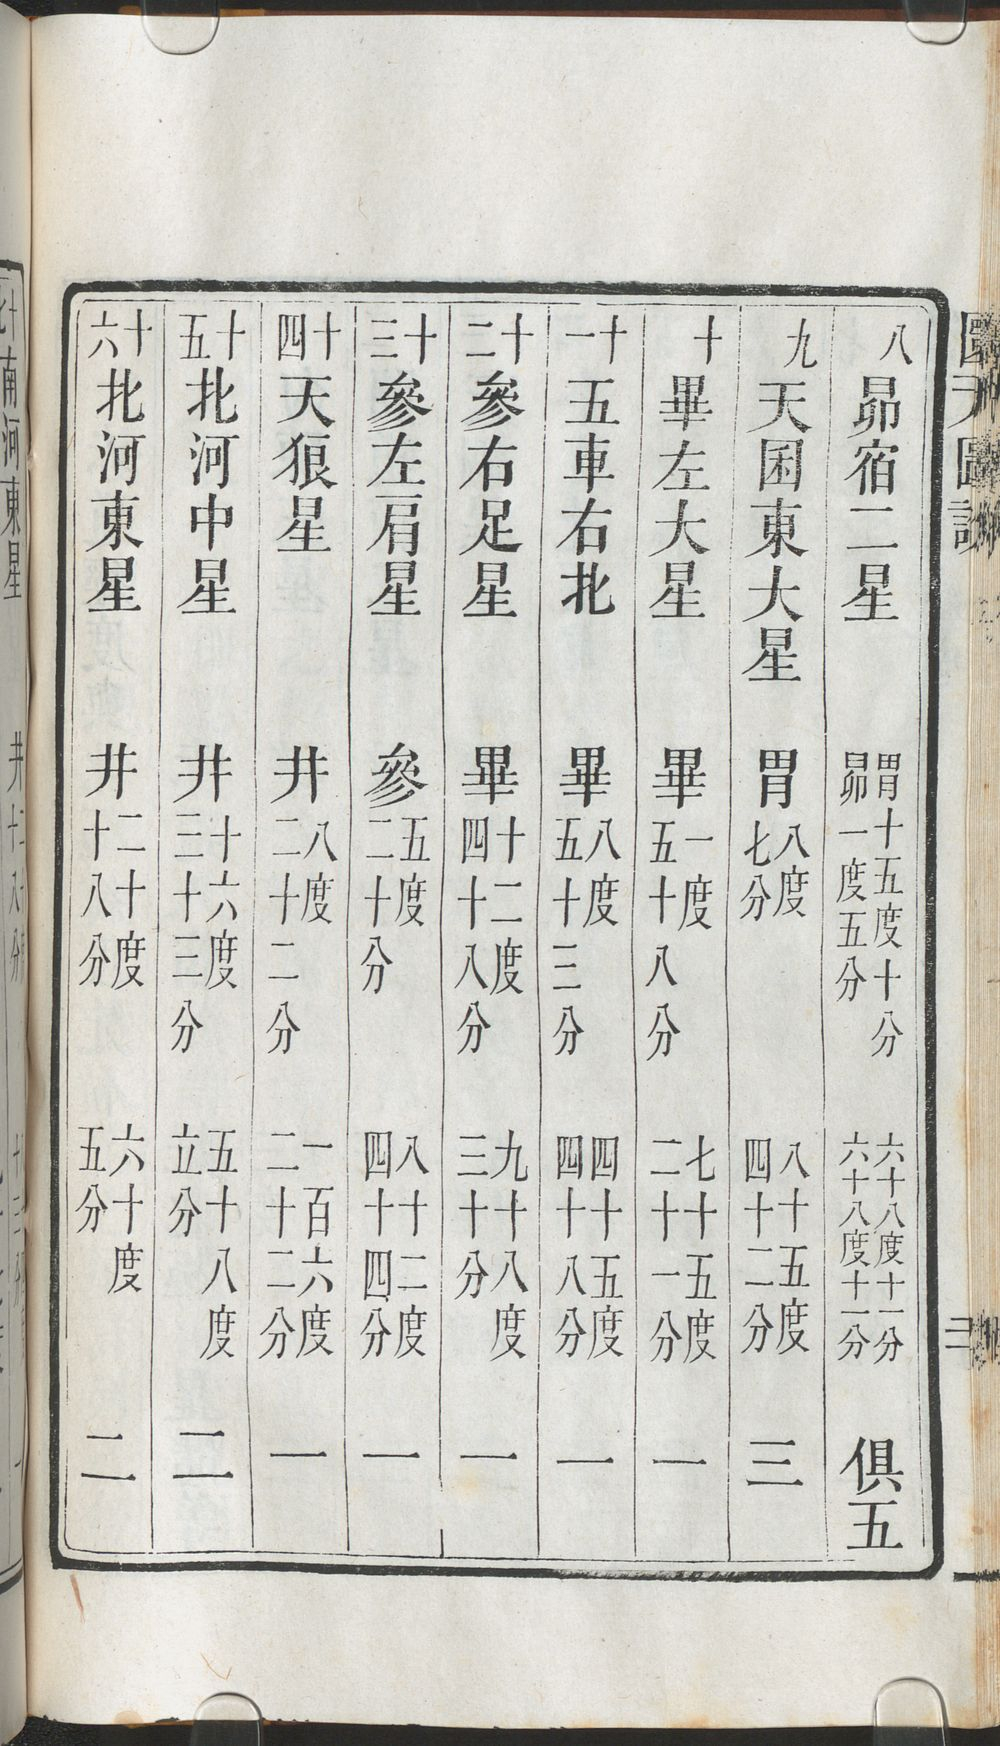 八 昴宿二星 胃十五度十分 昴一度五分 六十八度十一分 六十八度十一分 俱五
九 天囷東大星 胃八度七分 八十五度四十二分 三
十 畢左大星 畢一度五十八分 七十五度二十一分 一
十一 五車右北 畢八度五十三分 四十五度四十八分 一
十二 參右足星 畢十二度四十八分 九十八度三十分 一
十三 參左肩星 參五度二十分 八十二度四十四分 一
十四 天狼星 井八度二十二分 一百六度二十二分 一
十五 北河中星 井十六度三十三分 五十八度立分 二
十六 北河東星 井二十度十八分 六十度五分 二
南河東星